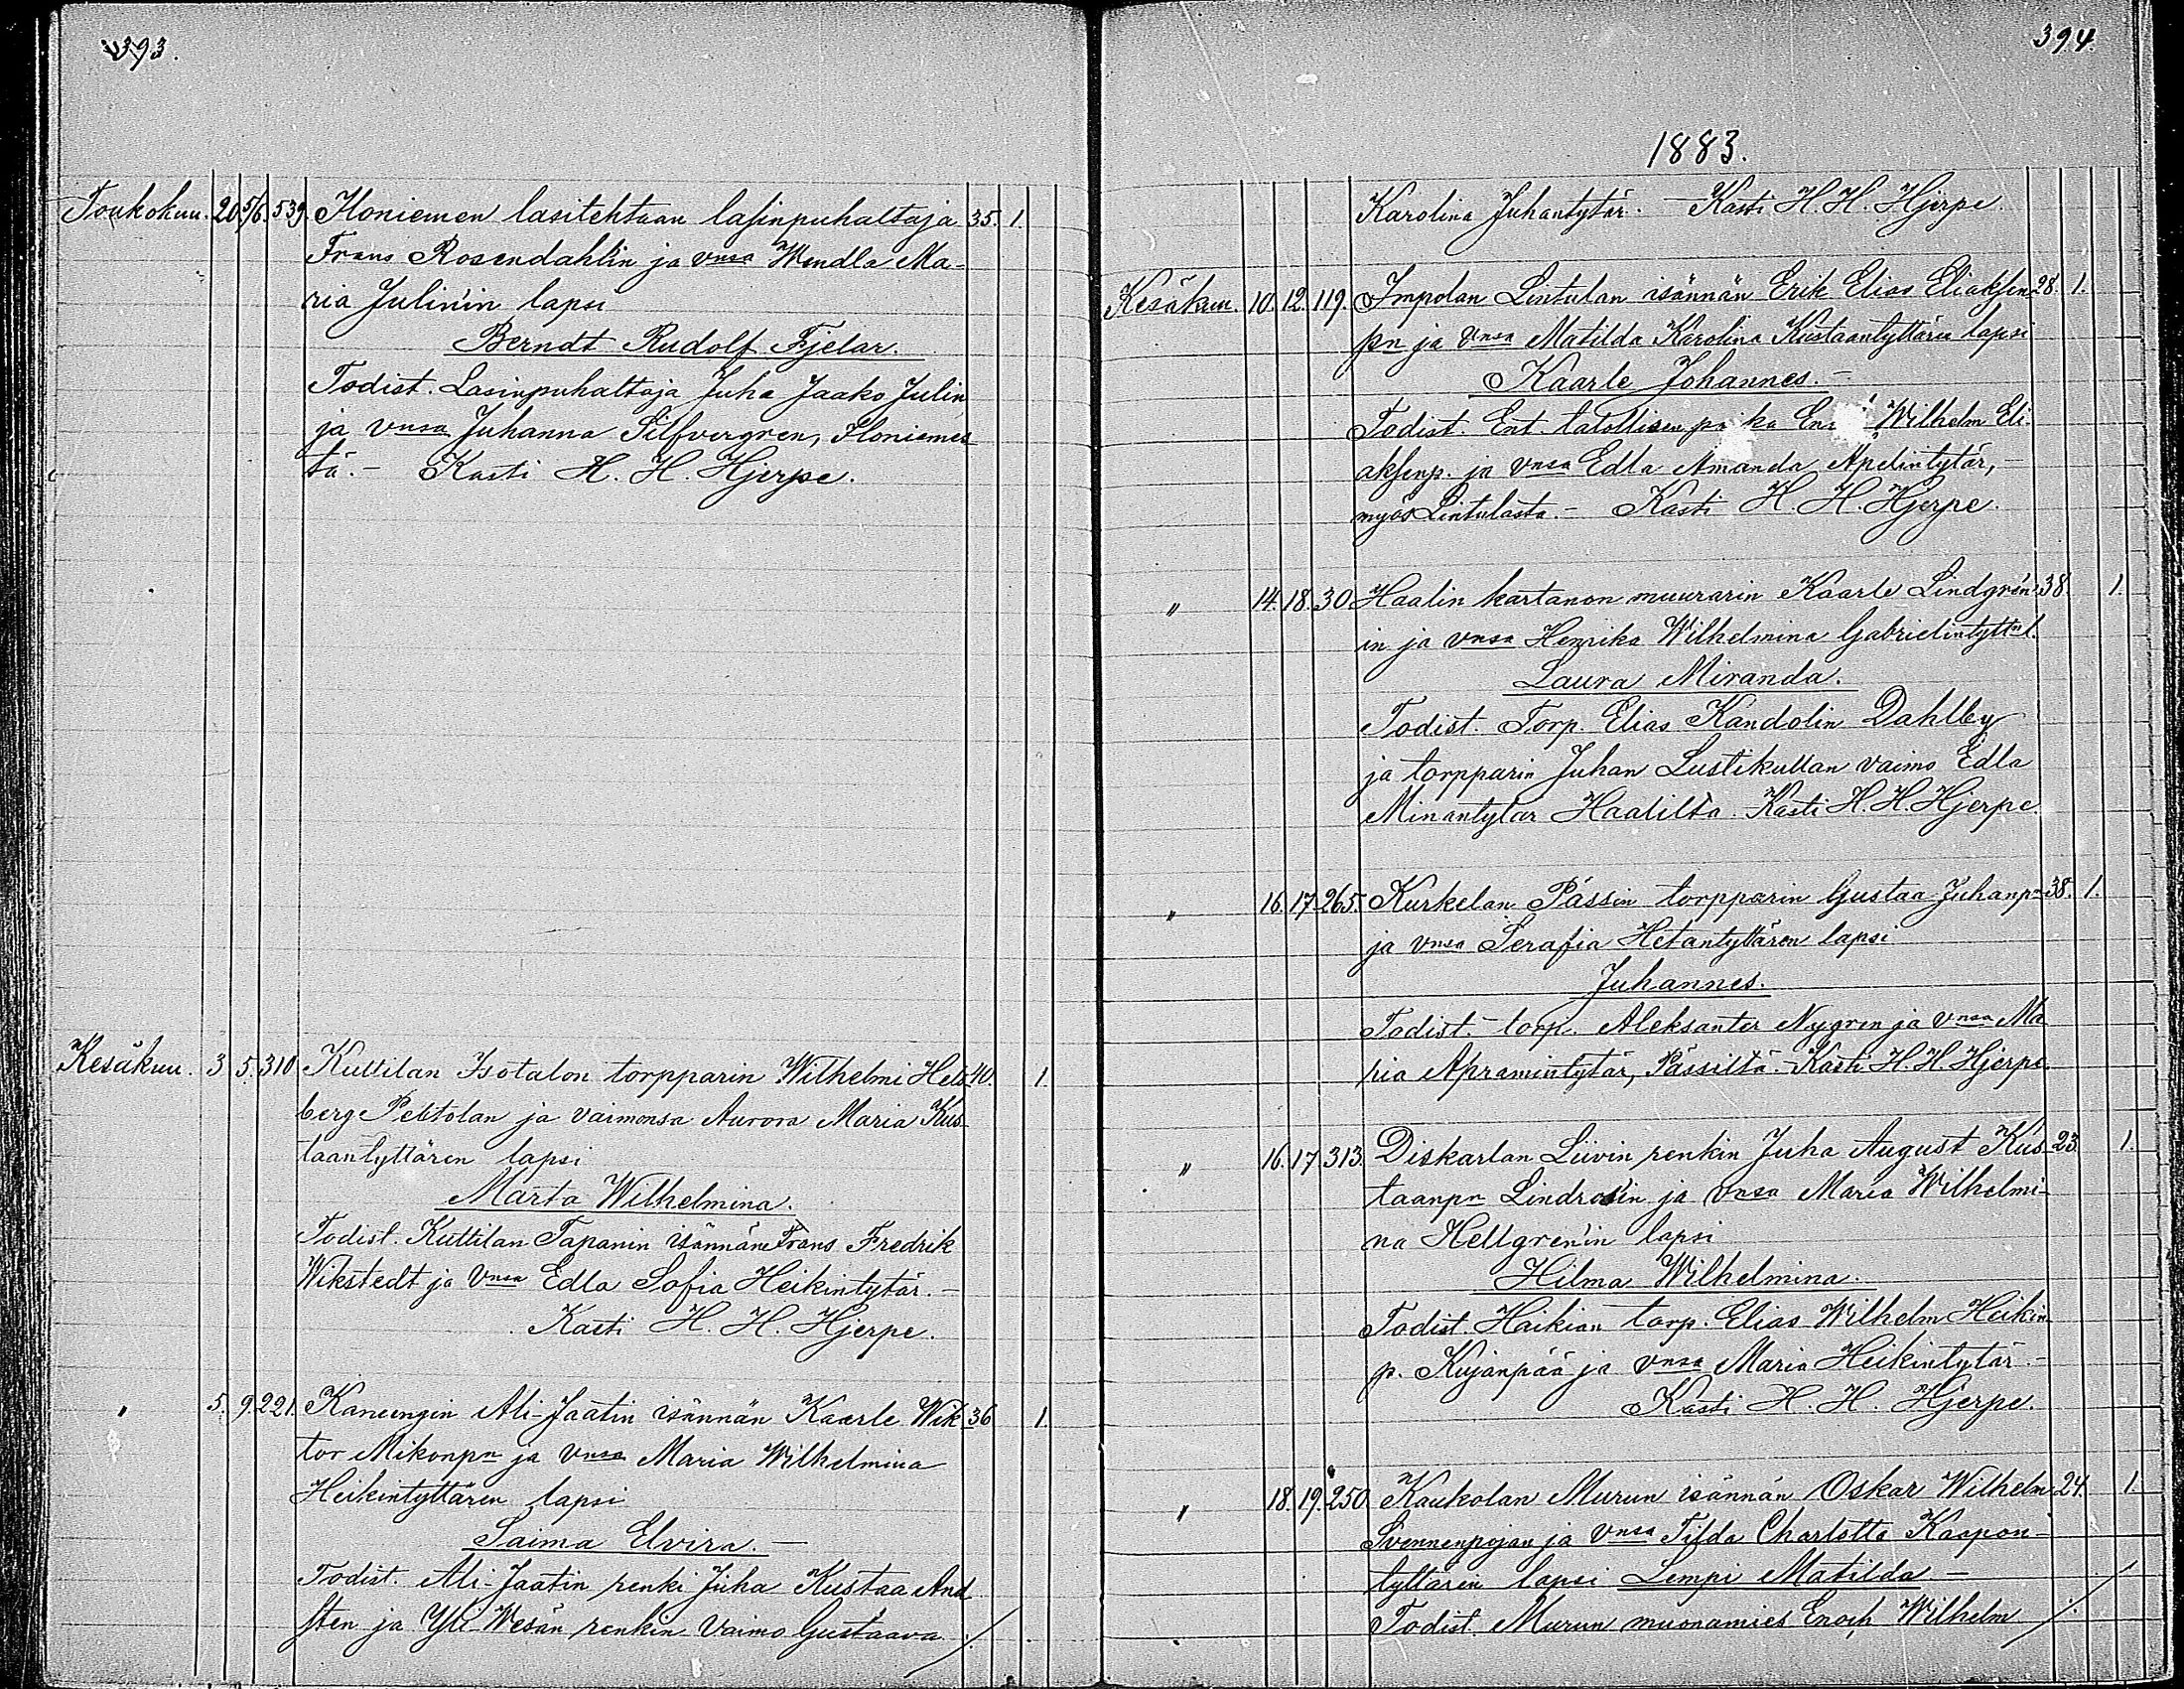 393.
Toukokuu. 20. 5/6. 539. Iloniemen lasitehtaan lasinpuhaltaja 35. 1.
Frans Rosendahlin ja vnsa Wendla Ma-
ria Julin'in lapsi
Berndt Rudolf Fjelar.
Todist. Lasinpuhaltaja Juha Jaako Julin
ja vnsa Juhanna Silfvergren, Iloniemes
tä. - Kasti H. H. Hjerpe.
Kesäkuu. 3 5. 310 Kuttilan Isotalon torpparin Wilhelmi Hels 40. 1.
berg Peltolan ja vaimonsa Aurora Maria Kus-
taantyttären lapsi
Marta Wilhelmina.
Todist. Kuttilan Tapanin isännäne Frans Fredrik
Wikstedt ja vnsa Edla Sofia Heikintytär. -
Kasti H. H. Hjerpe.
" 5. 9. 221. Kanungin Ali-Jaatin isännän Kaarle Wik- 36 1.
tor Mikonpn ja vnsa Maria Wilhelmina
Heikintyttären lapsi
Saima Elvira. -
Todist. Ali-Jaatin renki Juha Kustaa And
sten ja Yli-Wesän renkin vaimo Gustaava ./.
394.
1883.
Karolina Juhantytär. - Kasti H. H. Hjerpe
Kesäkuu. 10. 12. 119. Impolan Lintulan isännän Erik Elias Eliaksen 28. 1.
pn ja vnsa Matilda Karolina Kustaantyttären lapsi
Kaarle Johannes. -
Todist. Ent. talollisen Wilhelm Eli-
aksenp. ja vnsa Edla Amanda Apelintytär, -
myös Lintulasta. - Kasti H. H. Hjerpe.
" 14. 18. 30 Haalin kartanon muurarin Kaarle Lindgrén' 38. 1.
in ja vnsa Henrika Wilhelmina Gabrielintyttn l.
Laura Miranda.
Todist. Torp. Elias Kandolin Dahlby
ja torpparin Juhan Lustikullan vaimo Edla
Minantytar Haalilta. Kasti H. H. Hjerpe.
" 16. 17. 265. Kurkelan Pässin torpparin Gustaa Juhanpn 38. 1.
ja vnsa Serafia Hetantyttären lapsi
Juhannes.
Todist. - torp. Aleksanter Nygren ja vnsa Ma
ria Apramintytär, Pässiltä. - Kasti H. H. Hjerpe.
" 16. 17. 313. Diskarlan Liivin renkin Juha August Kus- 23. 1.
taanpn Lindrosin ja vnsa Maria Wilhelmi-
na Hellgren'in lapsi
Hilma Wilhelmina.
Todist. Haikion torp. Elias Wilhelm Heikin-
p. Kujanpää ja vnsa Maria Heikintytär. -
Kasti H. H. Hjerpe.
" 18. 19. 250 Kaukolan Murun isännän Oskar Wilhelm 24. 1.
Svennenpojan ja vnsa Tilda Charlotta Kaapon-
tyttären lapsi Lempi Matilda -
Todist. Murun muonamies Enoch Wilhelm ./.